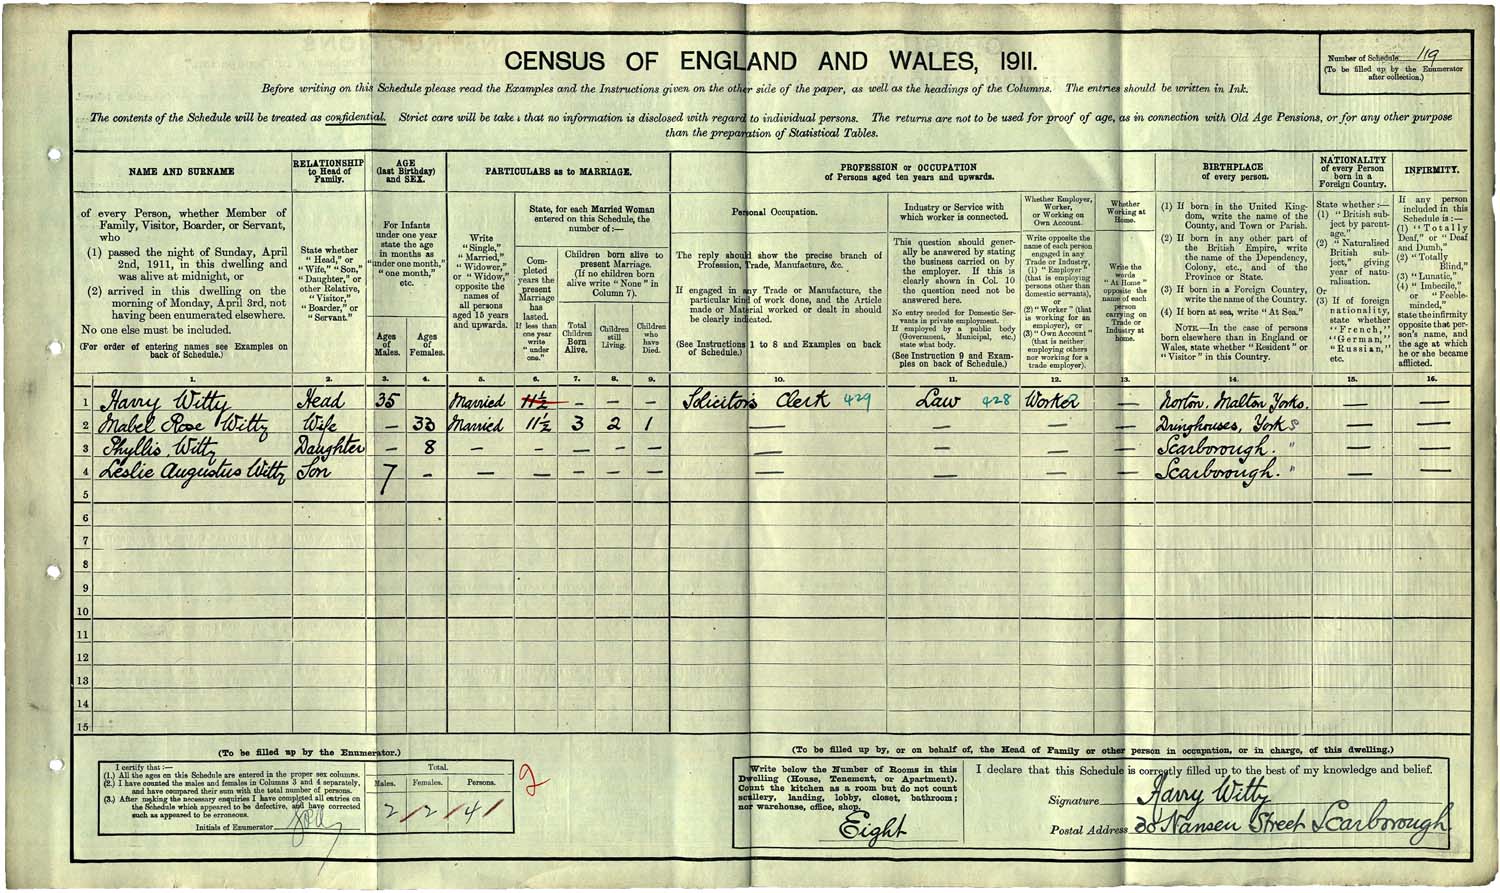 CENSUS OF ENGLAND AND WALES, 1911.
Number of Schedule 119
(To be filled up by the Enumerator
after collection.)
Before writing on this Schedule please read the Examples and the Instructions given on the other side of the paper, as well as the headings of the Columns. The entries should be written in Ink.
The contents of the Schedule will be treated as confidential. Strict care will be taken that no information is disclosed with regard to individual persons. The returns are not to be used for proof of age, as in connection with Old Age Pensions, or for any other purpose
than the preparation of Statistical Tables.
NAME AND SURNAME
of every Person, whether Member of
Family, Visitor, Boarder, or Servant,
who
(1) passed the night of Sunday, April
2nd, 1911, in this dwelling and
was alive at midnight, or
(2) arrived in this dwelling on the
morning of Monday, April 3rd, not
having been enumerated elsewhere.
No one else must be included.
(For order of entering names see Examples on
back of Schedule.)
RELATIONSHIP
to Head of
Family.
State whether
"Head," or
"Wife," "Son,"
"Daughter," or
other Relative,
"Visitor,"
"Boarder," or
"Servant."
AGE
(last Birthday)
and SEX.
For Infants
under one year
state the age
in months as
"under one month,"
"one month,"
etc.
Ages
of
Males.
Ages
of
Females.
PARTICULARS as to MARRIAGE.
Write
"Single,"
"Married,"
"Widower,"
or "Widow,"
opposite the
names of
all persons
aged 15 years
and upwards.
State, for each Married Woman
entered on this Schedule, the
number of:—
Completed
years the
present
Marriage
has
lasted.
If less than
one year
write
"under
one."
Children born alive to
present Marriage.
(If no children born
alive write "None" in
Column 7).
Total
Children
Born
Alive.
Children
still
Living.
Children
who
have
Died.
PROFESSION or OCCUPATION
of Persons aged ten years and upwards.
Personal Occupation.
The reply should show the precise branch of
Profession, Trade, Manufacture, &c.
If engaged in any Trade or Manufacture, the
particular kind of work done, and the Article
made or Material worked or dealt in should
be clearly indicated.
(See Instructions 1 to 8 and Examples on back
of Schedule.)
Industry or Service with
which worker is connected.
This question should generally
be answered by stating
the business carried on by
the employer. If this is
clearly shown in Col. 10
the question need not be
answered here.
No entry needed for Domestic Servants
in private employment.
If employed by a public body
(Government, Municipal, etc.)
state what body.
(See Instruction 9 and Examples
on back of Schedule.)
Whether Employer,
Worker,
or Working on
Own Account.
Write opposite the
name of each person
engaged in any
Trade or Industry,
(1) "Employer"
(that is employing
persons other than
domestic servants),
or
(2) "Worker" (that
is working for an
employer), or
(3) "Own Account"
(that is neither
employing others
nor working for a
trade employer).
Whether
Working at
Home.
Write the
words
"At Home"
opposite the
name of each
person
carrying on
Trade or
Industry at
home.
BIRTHPLACE
of every person.
(1) If born in the United Kingdom,
write the name of the
County, and Town or Parish.
(2) If born in any other part of
the British Empire, write
the name of the Dependency,
Colony, etc., and of the
Province or State.
(3) If born in a Foreign Country,
write the name of the Country.
(4) If born at sea, write "At Sea."
NOTE.—In the case of persons
born elsewhere than in England or
Wales, state whether "Resident" or
"Visitor" in this Country.
NATIONALITY
of every Person
born in a
Foreign Country.
State whether:—
(1) "British subject
by parentage."
(2) "Naturalised
British subject,"
giving
year of naturalisation.
Or
(3) If of foreign
nationality,
state whether
"French,"
"German,"
"Russian,"
etc.
INFIRMITY.
If any person
included in this
Schedule is:—
(1) "Totally
Deaf," or "Deaf
and Dumb,"
(2) "Totally
Blind,"
(3) "Lunatic,"
(4) "Imbecile,"
or "Feeble-
minded,"
state the infirmity
opposite that person's
name, and
the age at which
he or she became
afflicted.
1. 2. 3. 4. 5. 6. 7. 8. 9. 10. 11. 12. 13. 14. 15. 16.
1 Harry Witty Head 35 Married 11½ – – – Solicitor's Clerk 429 Law 428 Worker — Norton, Malton Yorks. — —
2 Mabel Rose Witty Wife – 33 Married 11½ 3 2 1 — — — — Dringhouses, Yorks — —
3 Phyllis Witty Daughter – 8 – – – – – — — — — Scarborough. " — —
4 Leslie Augustus Witty Son 7 – – – – – – — — — — Scarborough. " — —
5
6
7
8
9
10
11
12
13
14
15
(To be filled up by the Enumerator.)
I certify that:—
(1.) All the ages on this Schedule are entered in the proper sex columns.
(2.) I have counted the males and females in Columns 3 and 4 separately,
and have compared their sum with the total number of persons.
(3.) After making the necessary enquiries I have completed all entries on
the Schedule which appeared to be defective, and have corrected
such as appeared to be erroneous.
Initials of Enumerator
Total.
Males. Females. Persons.
2 2 4
2
(To be filled up by, or on behalf of, the Head of Family or other person in occupation, or in charge, of this dwelling.)
Write below the Number of Rooms in this
Dwelling (House, Tenement, or Apartment).
Count the kitchen as a room but do not count
scullery, landing, lobby, closet, bathroom;
nor warehouse, office, shop.
Eight
I declare that this Schedule is correctly filled up to the best of my knowledge and belief.
Signature Harry Witty
Postal Address 30 Nansen Street Scarborough